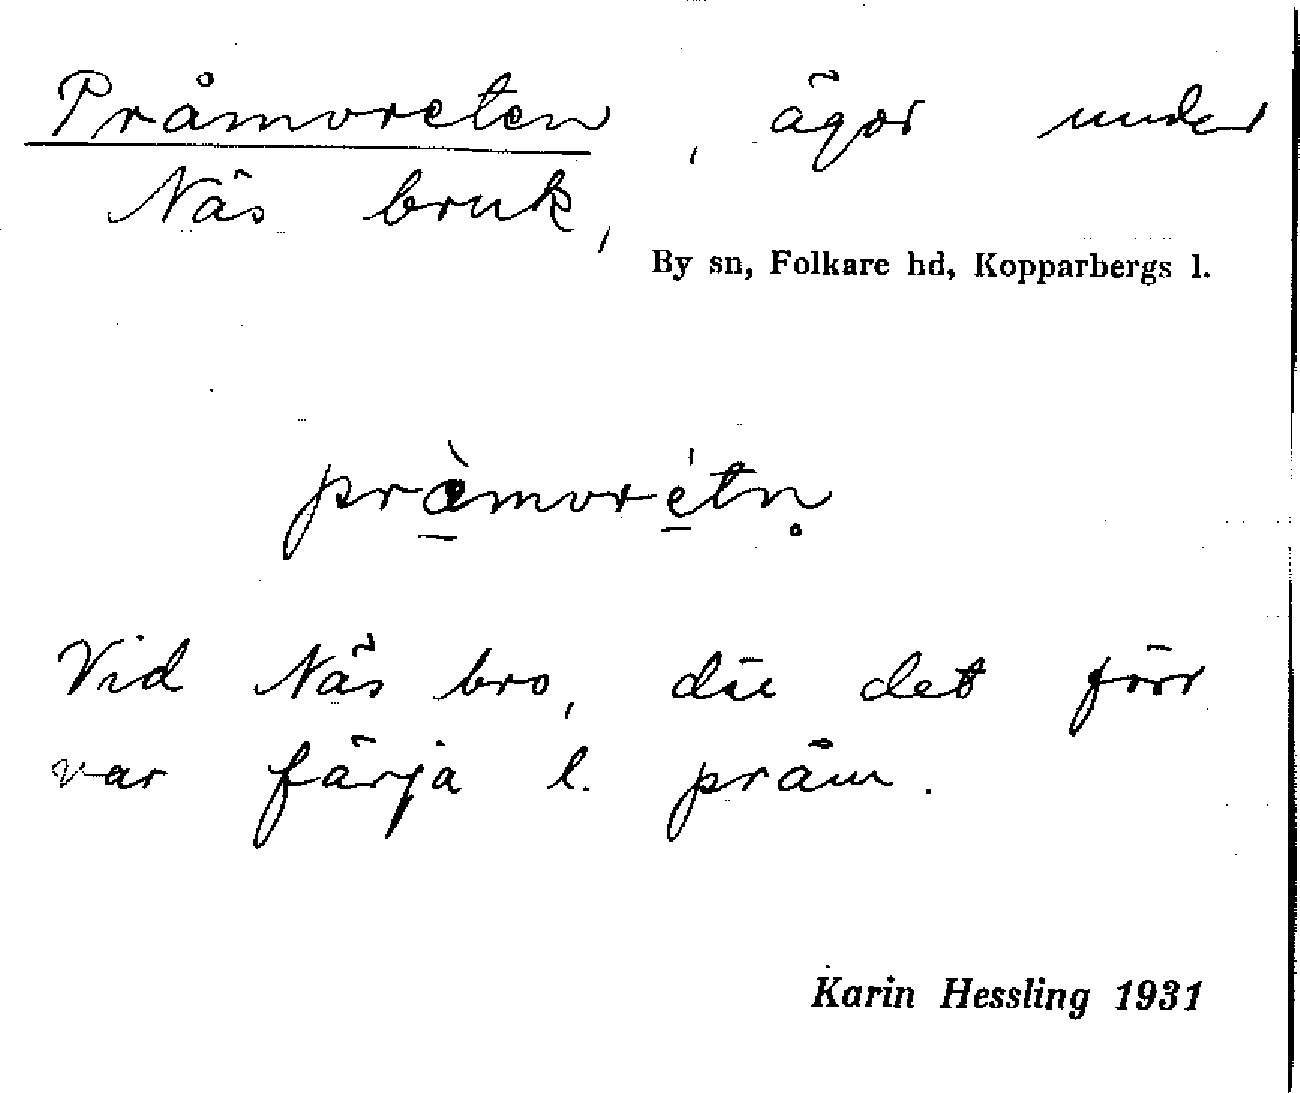 Pråmvreten, ägor under
Näs bruk,
By sn, Folkare hd, Kopparbergs l.
pràmvrétn̥
Vid Näs bro, där det förr
var färja l. pråm.
Karin Hessling 1931